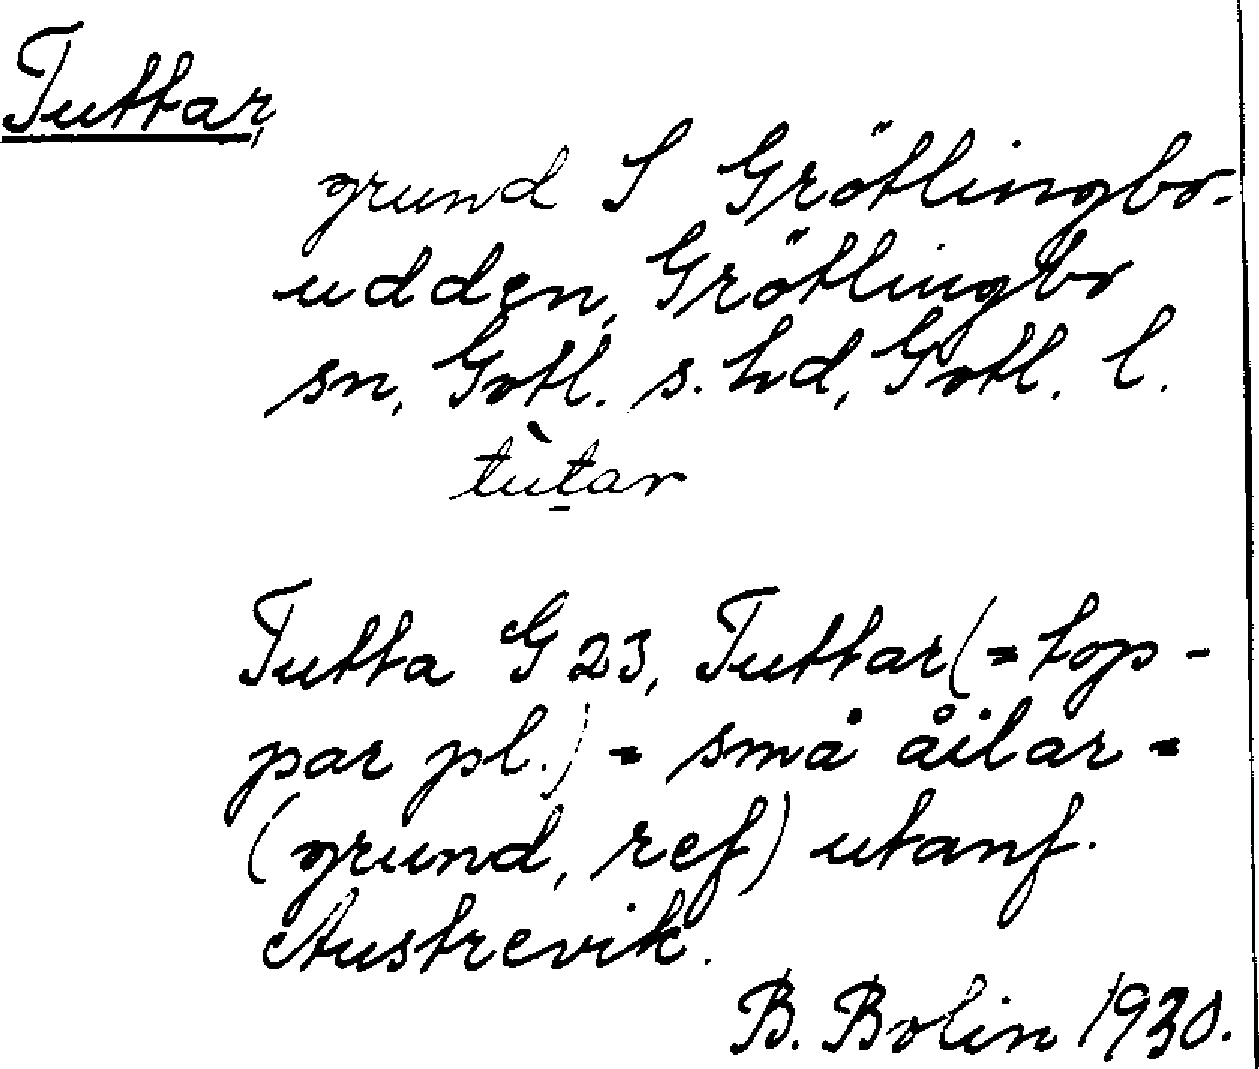 Tuttar,
grund S Grötlingbo-
udden, Grötlingbo
sn, Gotl. s. hd, Gotl. l.
tùt̠ar
Tutta G 23, Tuttar (= top-
par pl.) = små åilar =
(grund, ref) utanf.
Austrevik.
B. Bolin 1930.